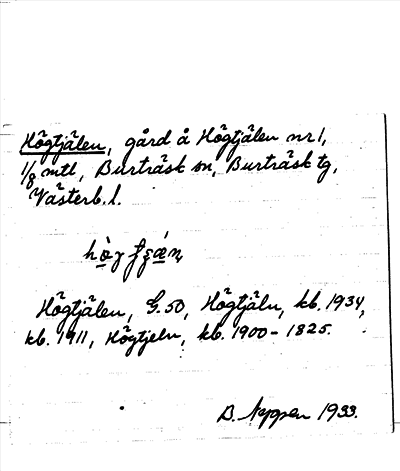 Högtjälen, gård å Högtjälen nr 1,
1/8 mtl, Burträsk sn, Burträsk tg,
Västerb. l.
Högtjälen, G. 50, Högtjäln, kb. 1934,
kb. 1911, Högtjeln, kb. 1900-1825.
B. 1933.